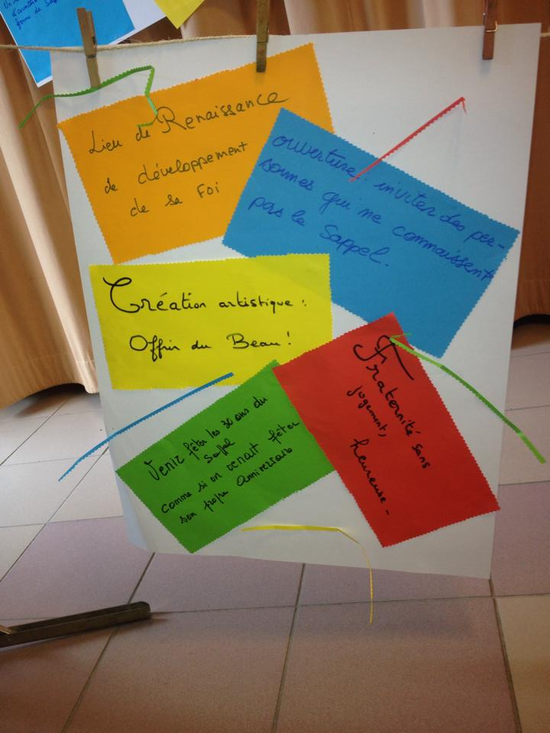 Lieu de Renaissance
de développement
de sa Foi
ouverture : inviter des per-
sonnes qui ne connaissent
pas le Sappel.
Création artistique :
Offrir du Beau !
Venir fêter les 30 ans du
Sappel
comme si on venait fêter
son propre anniversaire
Fraternité sans
jugement,
heureuse -